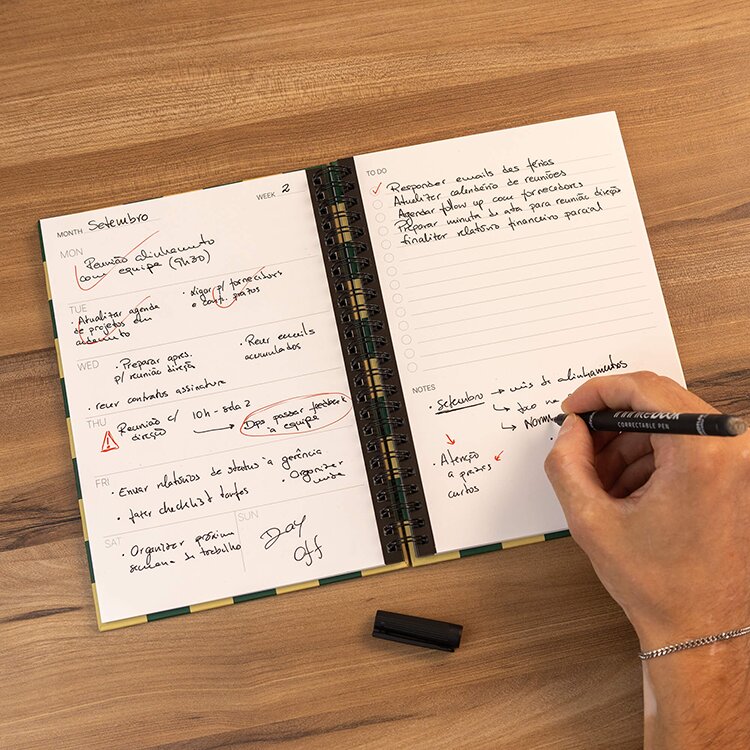 MONTH Setembro
WEEK 2
MON
Reunião alinhamento
com equipa (9h30)
TUE
• Atualizar agenda
de projetos em
andamento
• Ligar p/ fornecedores
e conf. prazos
WED
• Preparar apres.
p/ reunião direção
• Rever emails
acumulados
• rever contratos assinatura
THU
Reunião c/
direção
10h - sala 2
Dps passar feedback
à equipa
FRI
• Enviar relatórios de status à gerência
• fazer checklist tarefas
• Organizar
SAT
• Organizar próxima
semana de trabalho
SUN
Day
Off
TO DO
Responder emails das férias
Atualizar calendário de reuniões
Agendar follow up com fornecedores
Preparar minuta da ata para reunião direção
finalizar relatório financeiro parcial
NOTES
• Setembro → mês de alinhamentos
• Atenção
a prazos
curtos
CORRECTABLE PEN